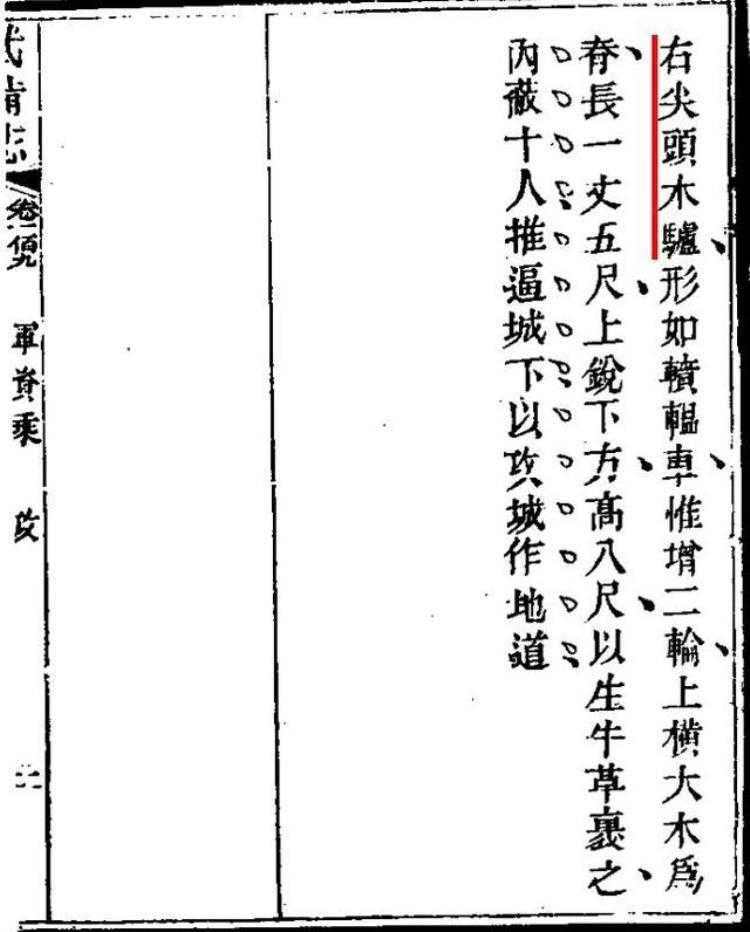 右尖頭木驢形如轒轀車惟增二輪上橫大木爲
脊長一丈五尺上銳下方高八尺以生牛革裹之
內蔽十人推逼城下以攻城作地道
武備志 卷一百九 軍資乘 攻